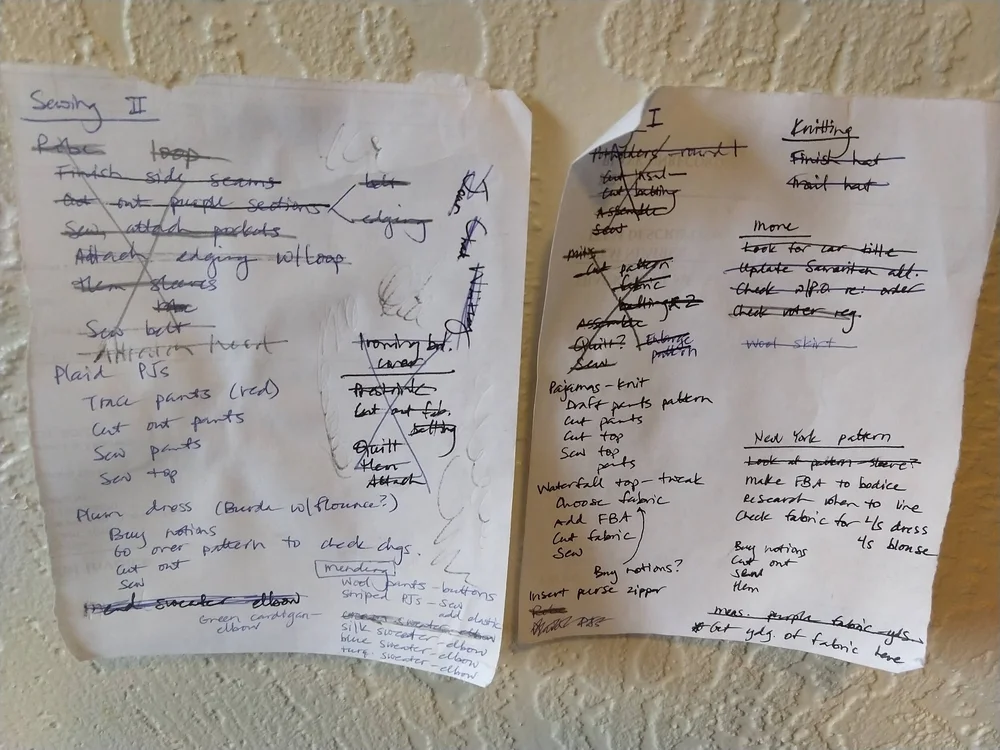 Sewing II
Robe loop
Finish side seams
Cut out purple sections
belt
edging
Sew, attach pockets
Attach edging w/loop
Hem sleeves
Sew belt
Attach
Ironing bd.
cover
Prestrink
Cut out fab.
batting
Quilt
Hem
Attach
Plaid PJs
Trace pants (red)
Cut out pants
Sew pants
Sew top
Plum dress (Burda w/flounce?)
Buy notions
Go over pattern to check chgs.
Cut out
Sew
Mend sweater elbow
Green cardigan-
elbow
Mending
Wool pants-buttons
Striped PJs-Sew
add elastic
sweater-elbow
silk sweater-elbow
blue sweater-elbow
turq. sweater-elbow
I
Potholders-round 1
Cut
Cut batting
Assemble
Sew
Mitts
Cut pattern
fabric
batting x2
Assemble
Quilt? Enlarge
pattern
Sew
Pajamas-knit
Draft pants pattern
Cut pants
Cut top
Sew top
pants
Waterfall top-tweak
Choose fabric
Add FBA
Cut fabric
Sew
Buy notions?
Insert purse zipper
Robe
Knitting
Finish hat
Trail hat
More
Look for car title
Update Samaritan all.
Check re: order
Check voter reg.
Wool skirt
New York pattern
Look at pattern-sleeve?
Make FBA to bodice
Research when to line
Check fabric for 4/s dress
4/s blouse
Buy notions
Cut out
Sew
Hem
meas. purple fabric-yds
*Get ydg. of fabric here